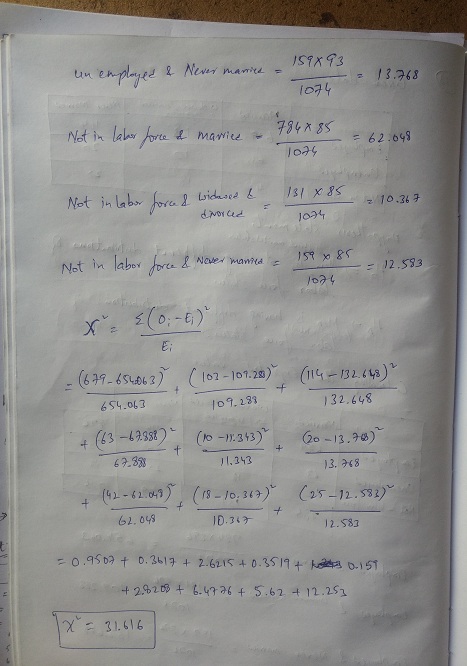 un employed & Never married = 159×93 / 1074 = 13.768
Not in labor force & married = 784×85 / 1074 = 62.048
Not in labor force & widowed & divorced = 131 × 85 / 1074 = 10.367
Not in labor force & Never married = 159 × 85 / 1074 = 12.583
X² = Σ(Oi-Ei)² / Ei
= (679-654.063)² / 654.063 + (103-109.289)² / 109.289 + (114-132.648)² / 132.648
+ (63-67.888)² / 67.888 + (10-11.343)² / 11.343 + (20-13.768)² / 13.768
+ (42-62.048)² / 62.048 + (18-10.367)² / 10.367 + (25-12.583)² / 12.583
= 0.9507 + 0.3617 + 2.6215 + 0.3519 + 0.159
+ 2.8208 + 6.4776 + 5.62 + 12.253
X² = 31.616